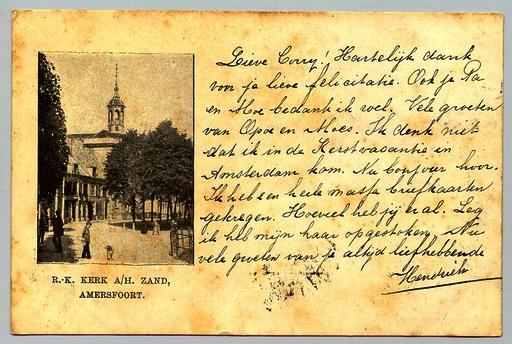 Lieve Corry! Hartelijk dank
voor je lieve felicitatie. Ook je Pa
en Moe bedank ik wel. Vele groeten
van Opoe en Moes. Ik denk niet
dat ik in de Kerstvacantie in
Amsterdam kom. Nu bonjour hoor.
Ik heb een heele massa briefkaarten
gekregen. Hoeveel heb jij er al. Zeg
ik heb mijn haar opgestoken. Nu
vele groeten van je altijd liefhebbende
R.-K. KERK A/H. ZAND,
AMERSFOORT.